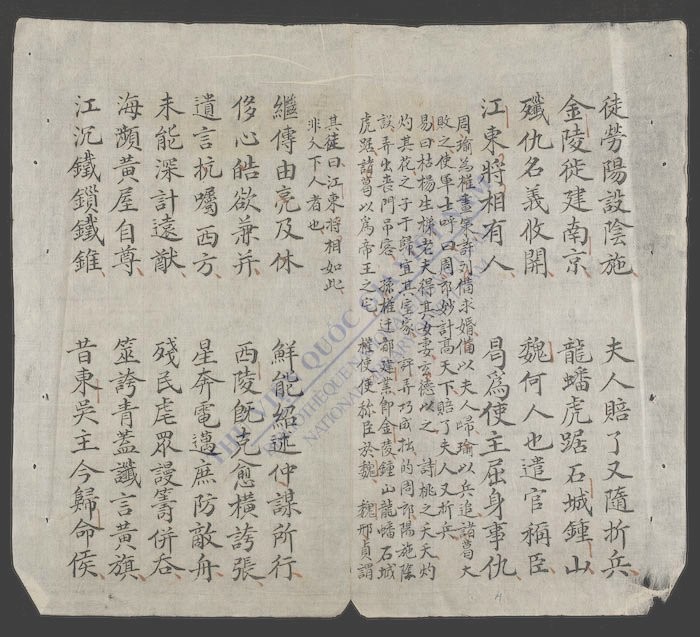 徒勞陽設陰施 夫人賠了又隨折兵
金陵徙建南京 龍蟠虎踞石城鍾山
殲仇名義攸開 魏何人也遣官稱臣
江東將相有人 曷為使主屈身事仇
周瑜為權畫策詐刘備求婚備以夫人歸瑜以兵追諸葛大
敗之使軍士呼曰周郎妙計高天下賠了夫人又折兵
易曰枯楊生稊老夫得其女妻玄德以之 詩桃之夭夭灼
灼其花之子于歸宜其室家 弄巧成拙的周郎陽施陰
設弄出喪門吊客 孫權迁都建業即金陵鍾山龍蟠石城
虎踞諸葛以為帝王之宅 權使使称臣於魏 魏邢貞謂
其徒曰江東將相如此
非久下人者也
繼傳由亮及休 鮮能紹述仲謀所行
侈心皓欲兼并 西陵既克愈橫誇張
遺言抗囑西方 星奔電邁庶防敵舟
未能深計遠猷 殘民虐眾謾籌併吞
海瀕黃屋自尊 筮誇青蓋讖言黃旗
江沉鐵鎖鐵錐 昔東吳主今歸命侯
THƯ VIỆN QUỐC NAM
BIBLIOTHÈQUE
NATIONAL LIBRARY